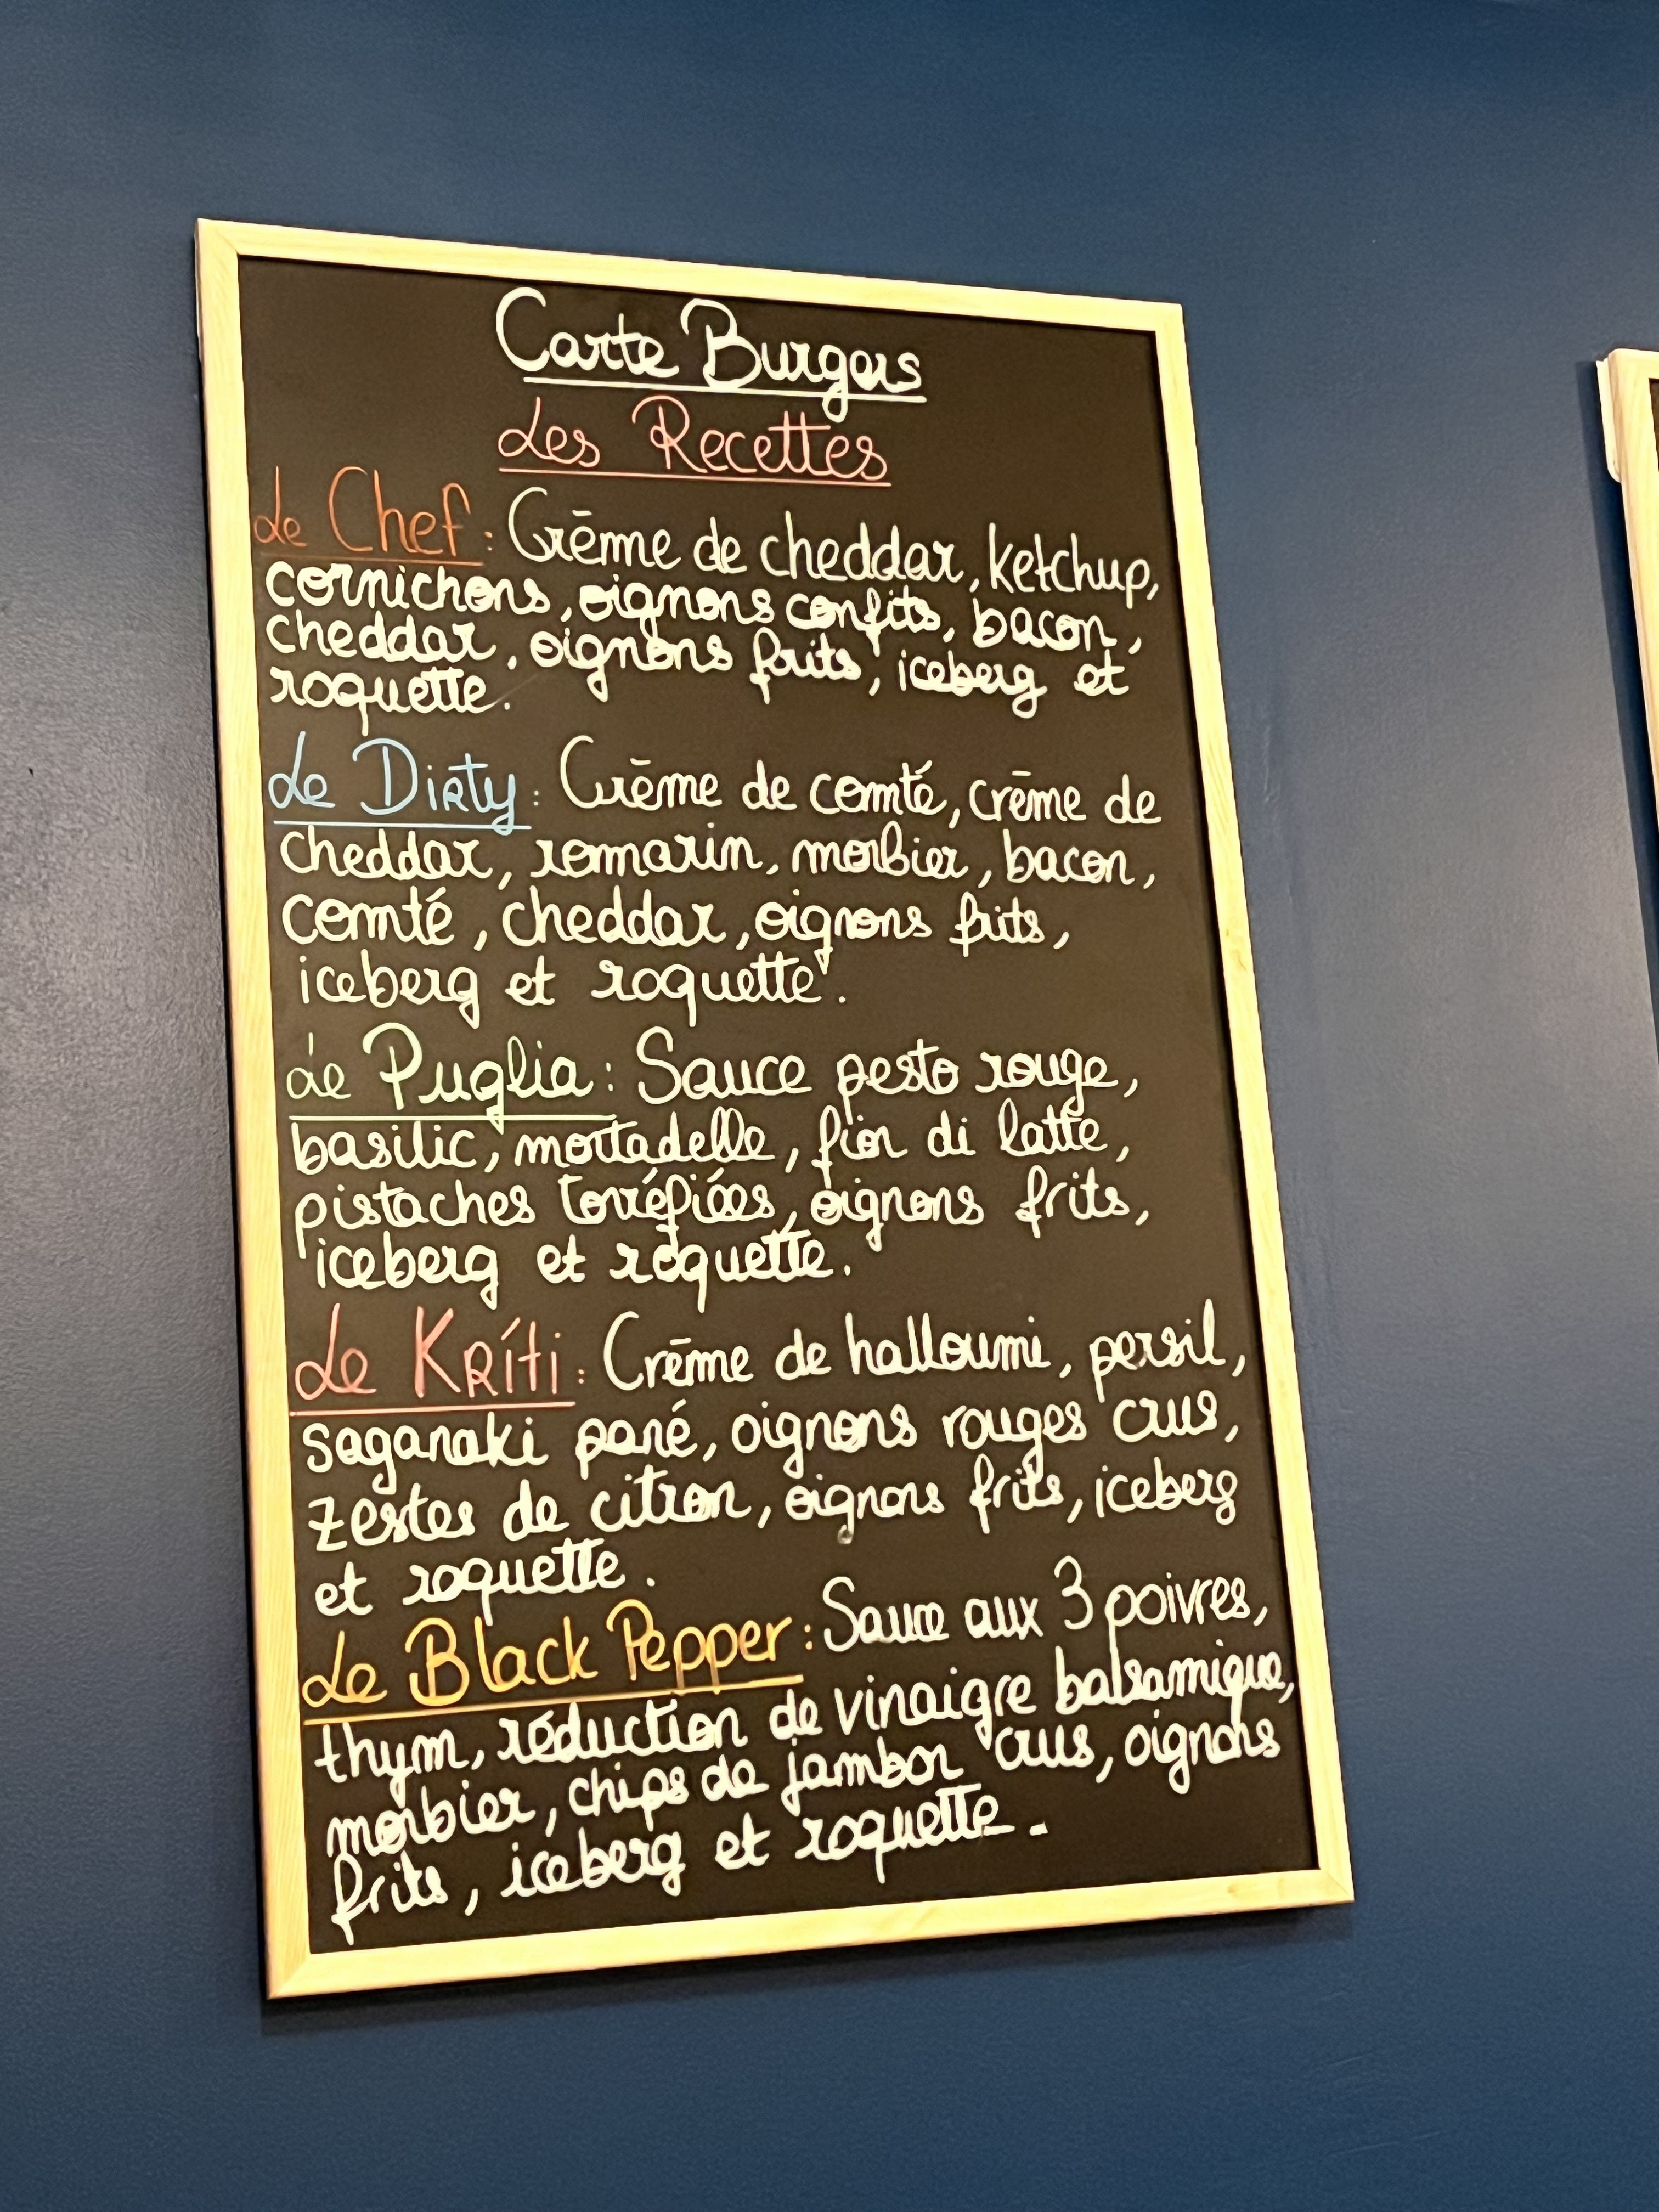 Carte Burgers
Les Recettes
Le Chef : Crème de cheddar, ketchup,
cornichons, oignons confits, bacon,
cheddar, oignons frits, iceberg et
roquette.
Le Dirty : Crème de comté, crème de
cheddar, romarin, morbier, bacon,
comté, cheddar, oignons frits,
iceberg et roquette.
Le Puglia : Sauce pesto rouge,
basilic, mortadelle, fior di latte,
pistaches torréfiées, oignons frits,
iceberg et roquette.
Le Kríti : Crème de halloumi, persil,
saganaki pané, oignons rouges crus,
zestes de citron, oignons frits, iceberg
et roquette.
Le Black Pepper : Sauce aux 3 poivres,
thym, réduction de vinaigre balsamique,
morbier, chips de jambon crus, oignons
frits, iceberg et roquette.